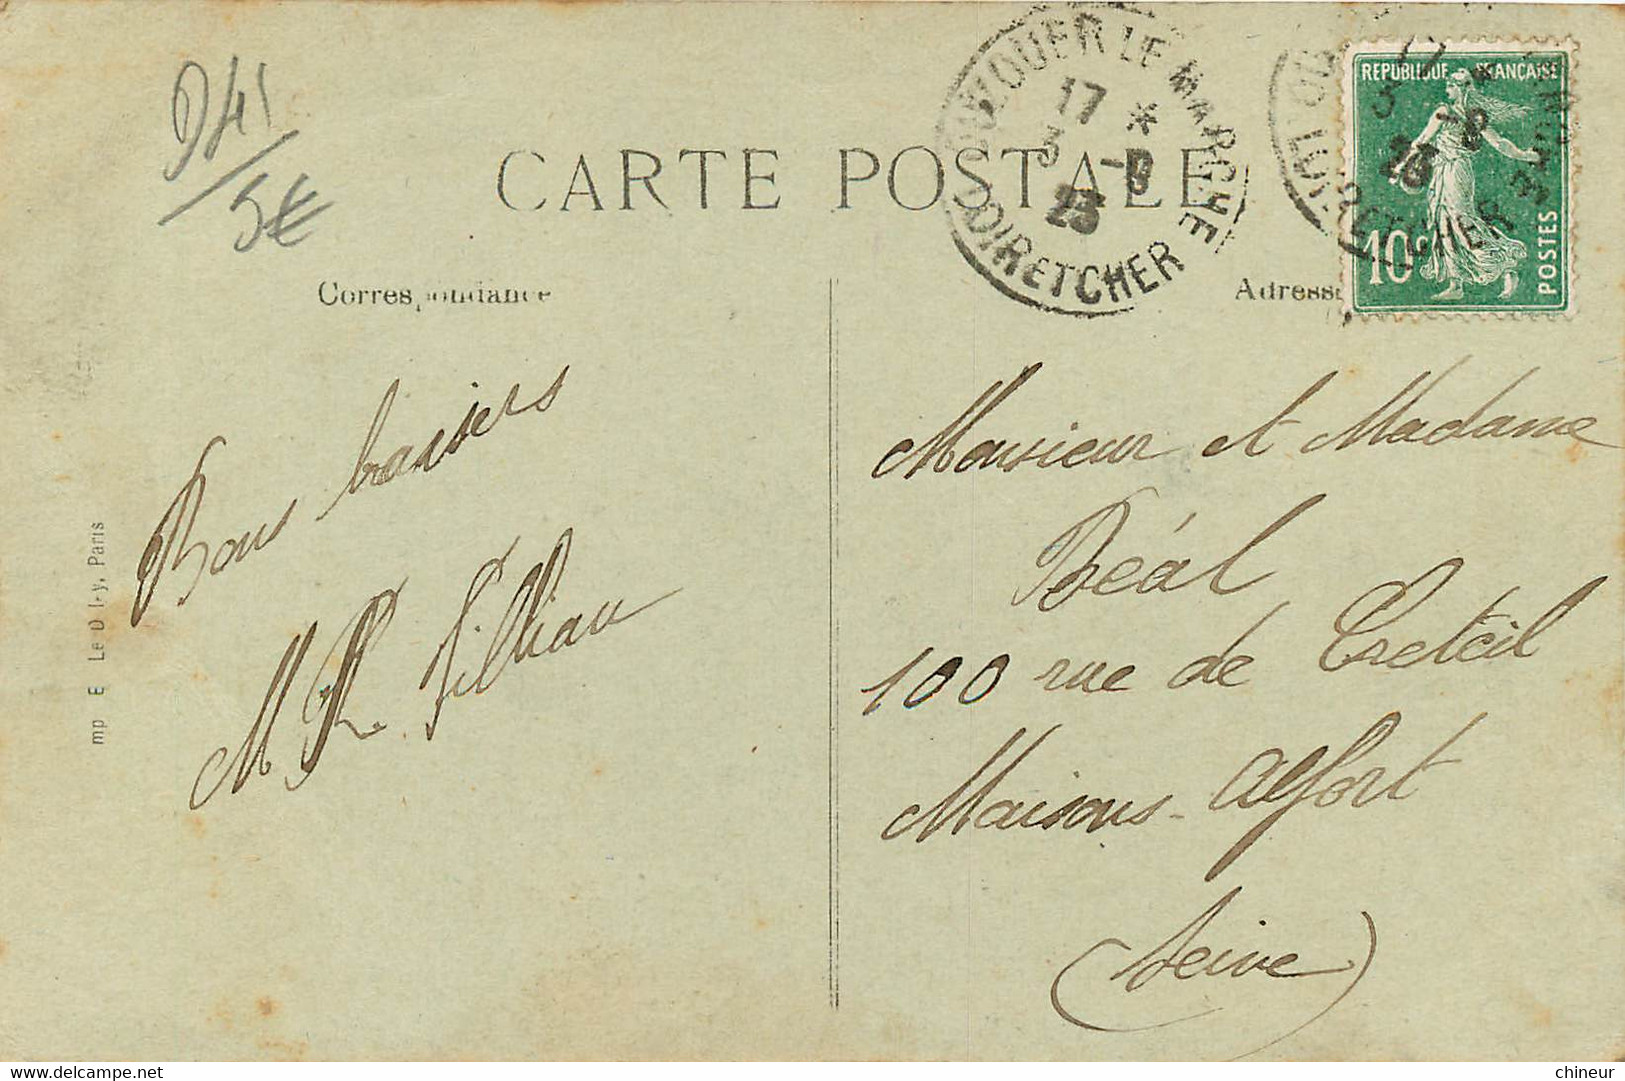 941
5€
CARTE POSTALE
OUZOUER LE MARCHE
17 *
5 -9
23
LOIR ET CHER
REPUBLIQUE FRANÇAISE
10c
POSTES
Correspondance
Adresse
Bons baisers
M R Filliau
Monsieur et Madame
Béal
100 rue de Creteil
Maisons-Alfort
(Seine)
Paris
www.delcampe.net
chineur